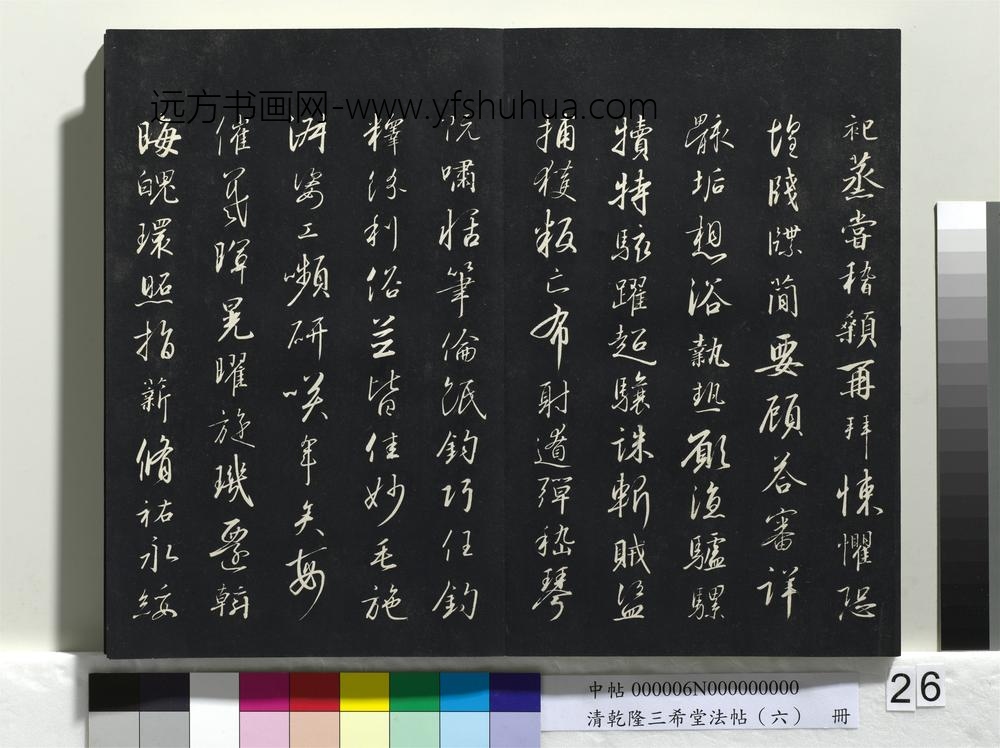 远方书画网-www.yfshuhua.com
祀蒸嘗稽顙再拜悚懼恐
惶牋牒簡要顧答審詳
骸垢想浴執熱願涼驢騾
犢特駭躍超驤誅斬賊盜
捕獲叛亡布射遼彈嵇琴
阮嘯恬筆倫紙鈞巧任釣
釋紛利俗並皆佳妙毛施
淑姿工嚬研咲年矢每
催羲暉晃曜旋璣懸斡
晦魄環照指薪脩祐永綏
中帖 000006N000000000
清乾隆三希堂法帖（六） 冊
26